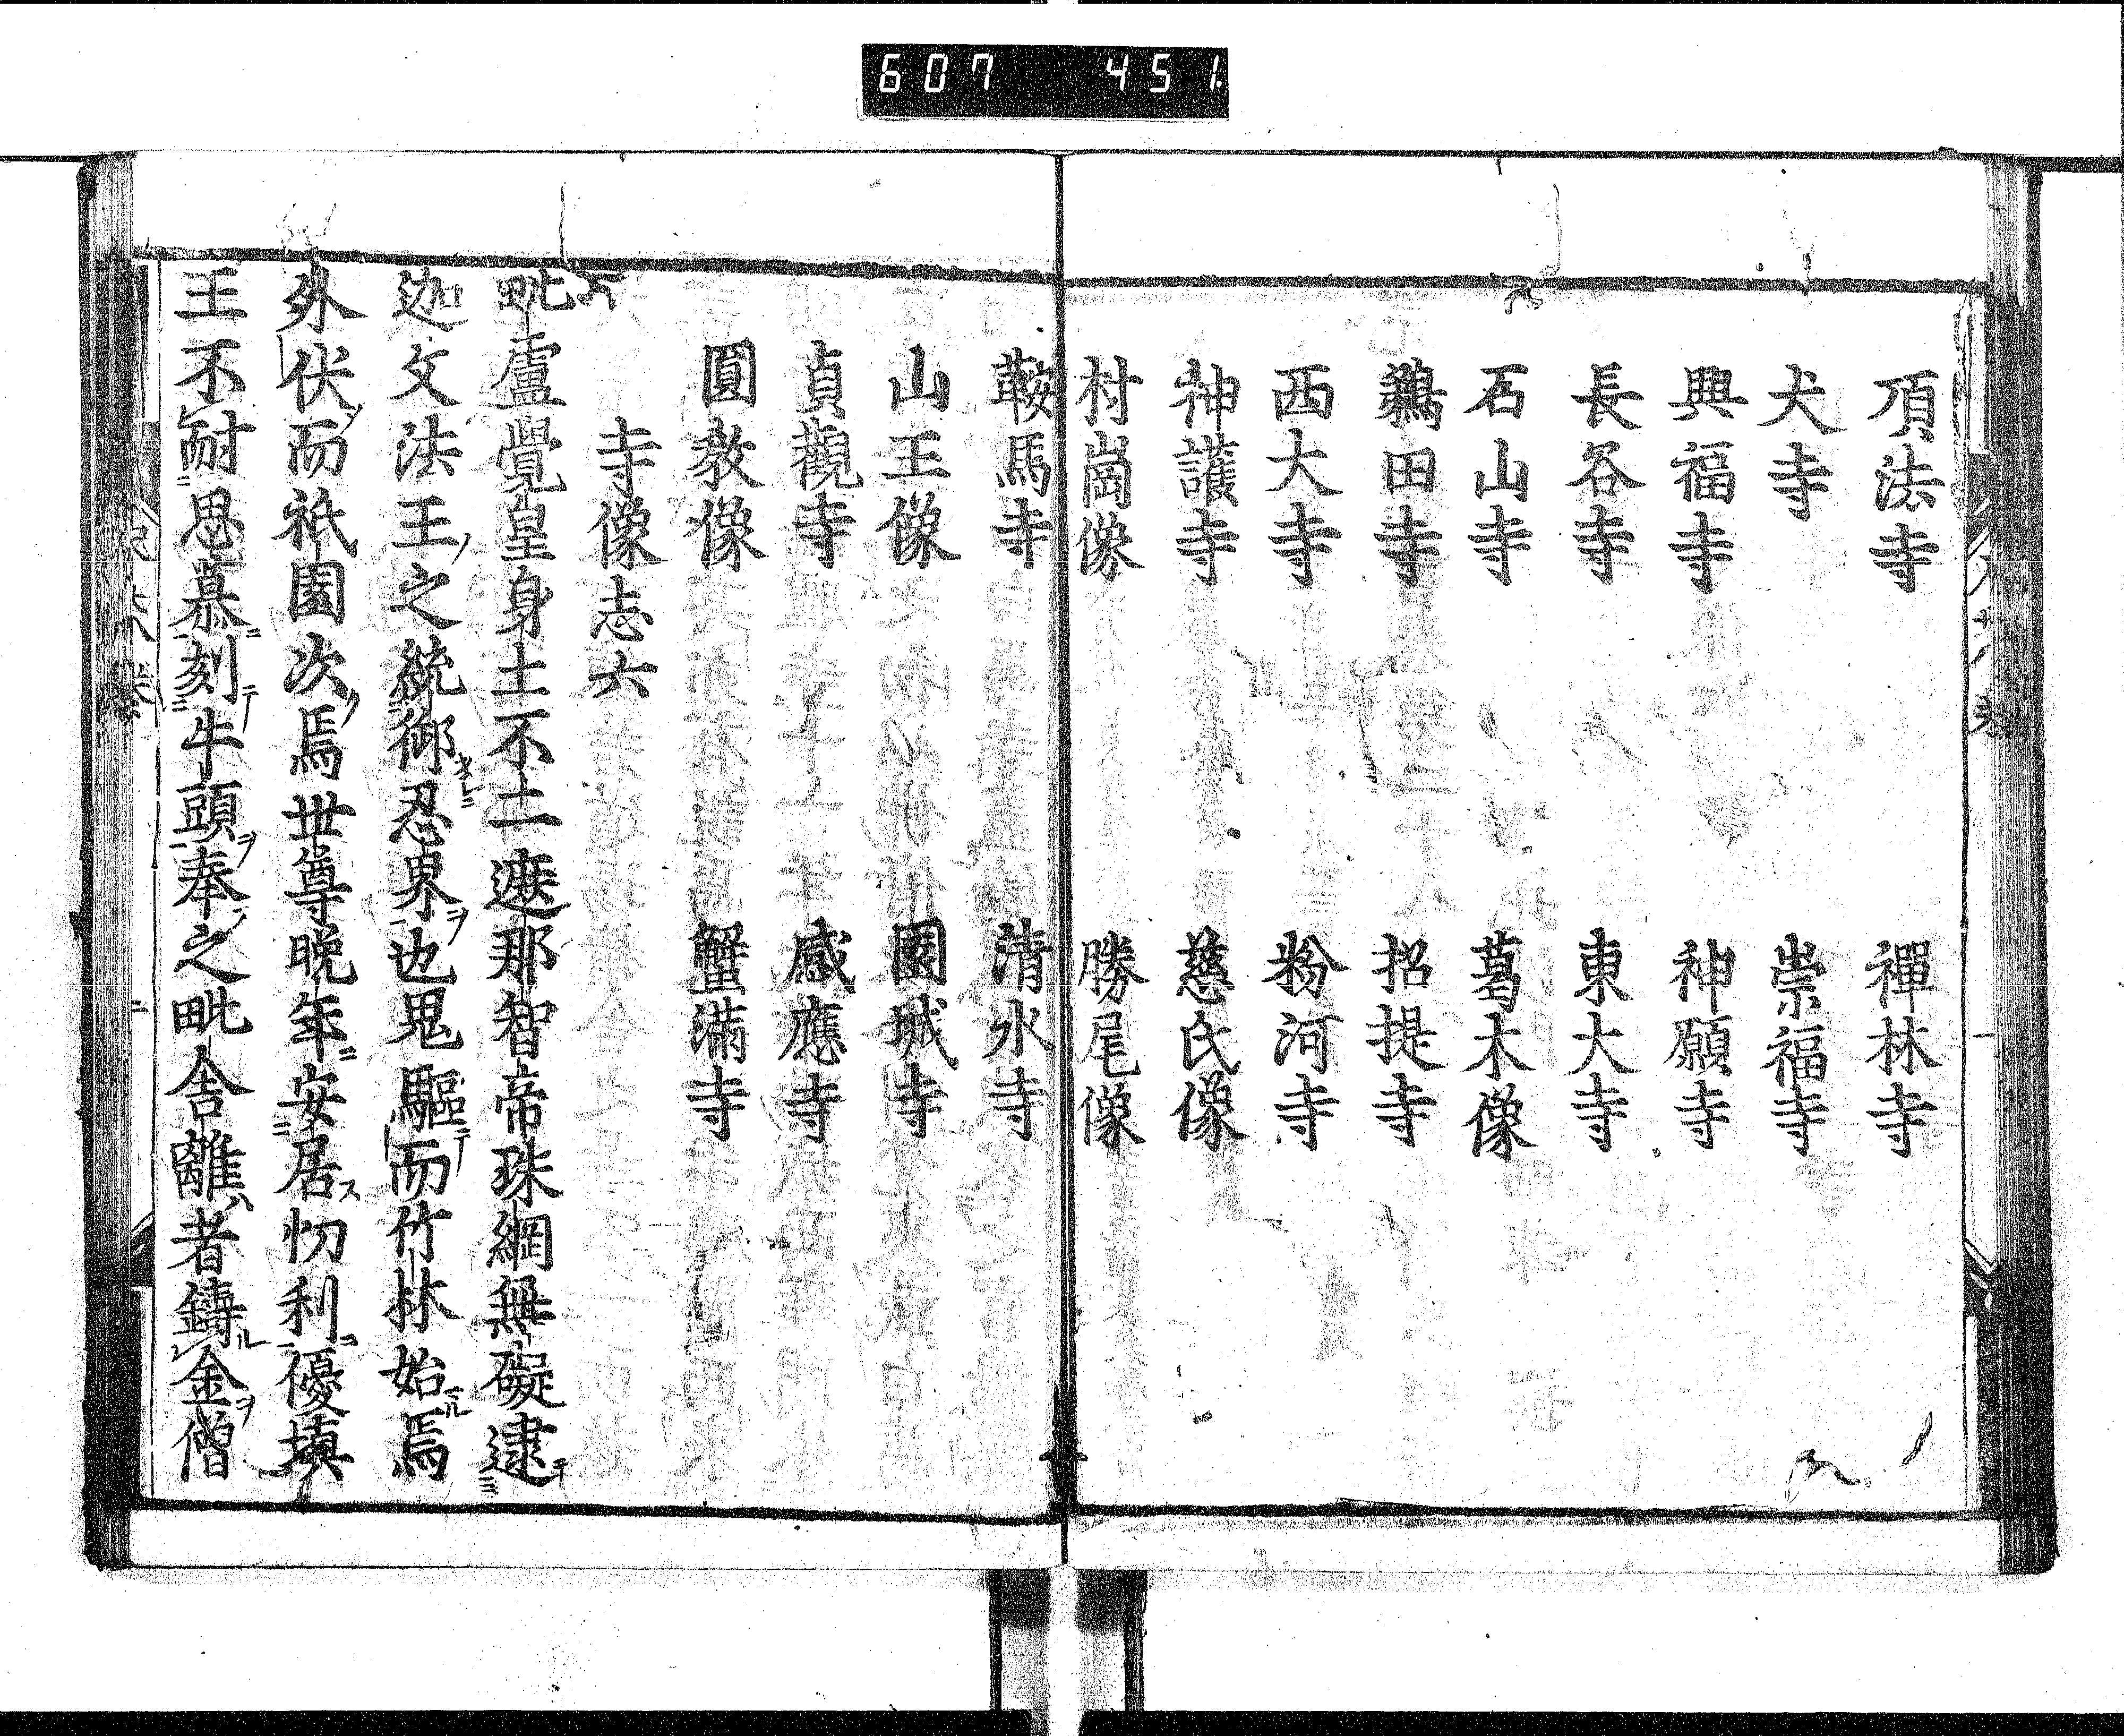 607 451
頂法寺 禪林寺
犬寺 崇福寺
興福寺 神願寺
長谷寺 東大寺
石山寺 葛木像
鵜田寺 招提寺
西大寺 粉河寺
神護寺 慈氏像
村崗像 勝尾像
鞍馬寺 清水寺
山王像 園城寺
貞觀寺 感應寺
圓教像 蟹滿寺
寺像志六
毗盧覺皇身土不二遮那智帝珠網無礙逮
迦文法王之統御忍界也鬼驅而竹林始焉
外伏而祇園次焉世尊晚年安居忉利優填
王不耐思慕刻牛頭奉之毗舍離者鑄金僧